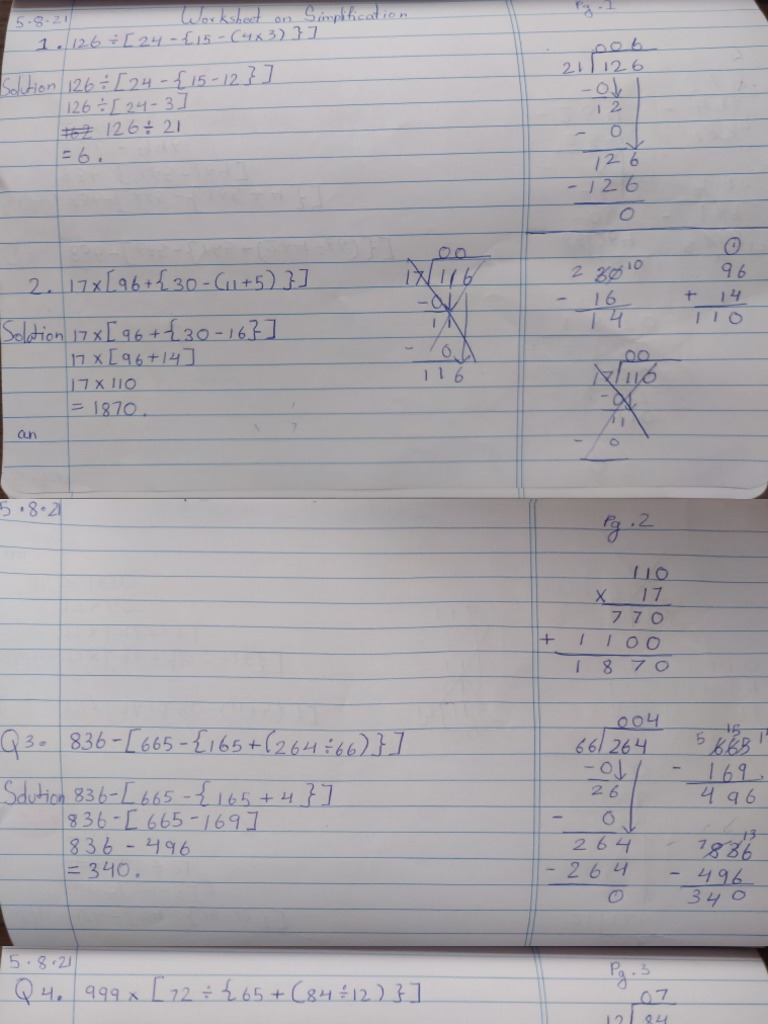 5.8.21 Worksheet on Simplification Pg.1
1. 126÷[24-{15-(4×3)}]
Solution 126÷[24-{15-12}]
126÷[24-3]
126÷21
=6.
006
21 126
-0
12
- 0
126
-126
0
2. 17×[96+{30-(11+5)}]
Solution 17×[96+{30-16}]
17×[96+14]
17×110
=1870.
an
00
17 116
-0
11
- 0
116
2 30 10
- 16
14
1
96
+ 14
110
00
17 116
-0
11
- 0
5.8.21 Pg.2
110
× 17
770
+ 1100
1870
Q3. 836-[665-{165+(264÷66)}]
Solution 836-[665-{165+4}]
836-[665-169]
836-496
=340.
004
66 264
-0
26
- 0
264
-264
0
5 15
665
- 169
496
7 13
836
- 496
340
5.8.21 Pg.3
Q4. 999×[72÷{65+(84÷12)}]
07
12 84